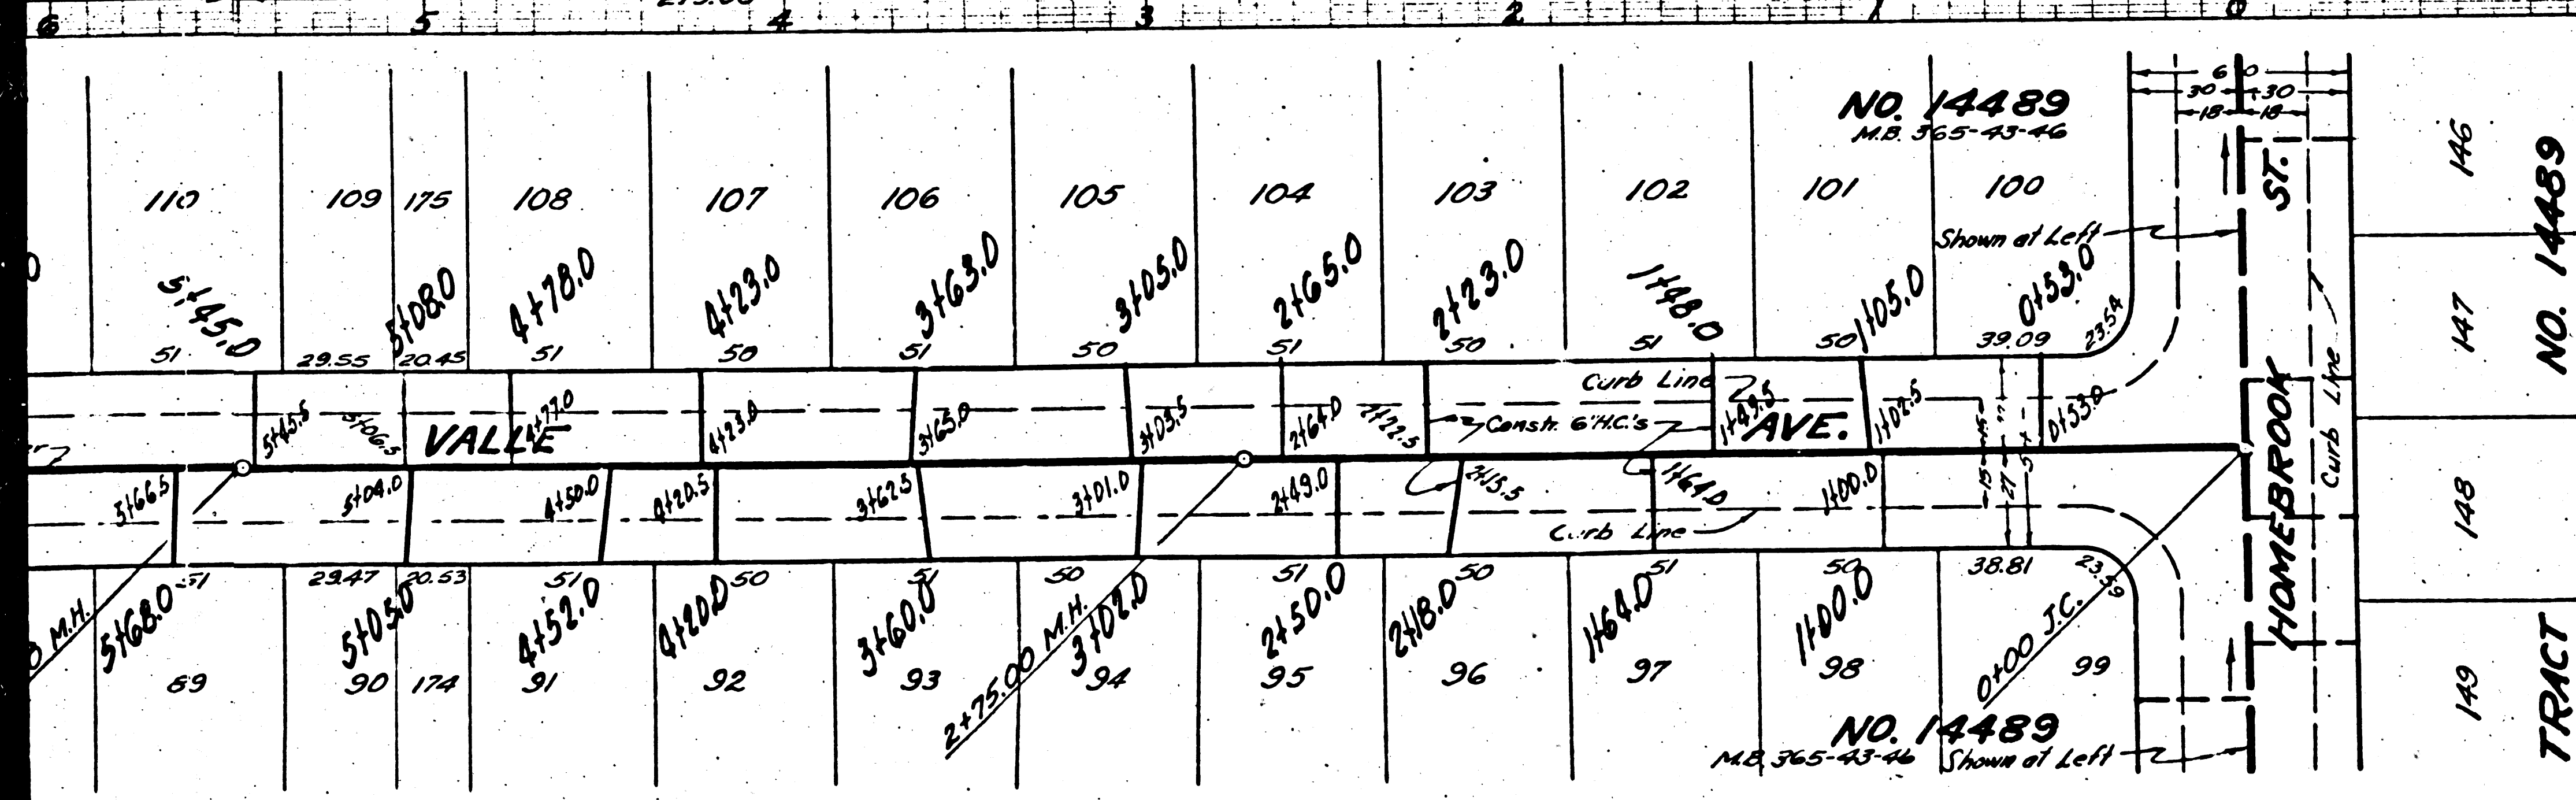 6 5 4 3 2 1 0
60
30 30
18 18
NO. 14489
M.B. 365-43-46
110 109 175 108 107 106 105 104 103 102 101 100
Shown at Left
ST.
5+45.0 5+08.0 4+78.0 4+23.0 3+63.0 3+05.0 2+65.0 2+23.0 1+48.0 1+05.0 0+53.0
51 29.55 20.45 51 50 51 50 51 50 51 50 39.09 23.54
Curb Line
5+45.5 5+06.5 4+77.0 4+23.0 3+65.0 3+03.5 2+64.0 2+22.5 1+49.5 1+02.5 0+53.0
VALLE AVE.
Constr. 6" H.C's
15 15
27 27
5+66.5 5+04.0 4+50.0 4+20.5 3+62.5 3+01.0 2+49.0 2+15.5 1+64.0 1+00.0
Curb Line
51 29.47 20.53 51 50 51 50 51 50 51 50 38.81 23.59
M.H.
5+68.0 5+05.0 4+52.0 4+20.0 3+60.0 3+02.0 2+50.0 2+18.0 1+64.0 1+00.0
2+75.00 M.H.
0+00 J.C.
89 90 174 91 92 93 94 95 96 97 98 99
NO. 14489
M.B. 365-43-46 Shown at Left
HOMEBROOK
Curb Line
146
147
148
149
NO. 14489
TRACT